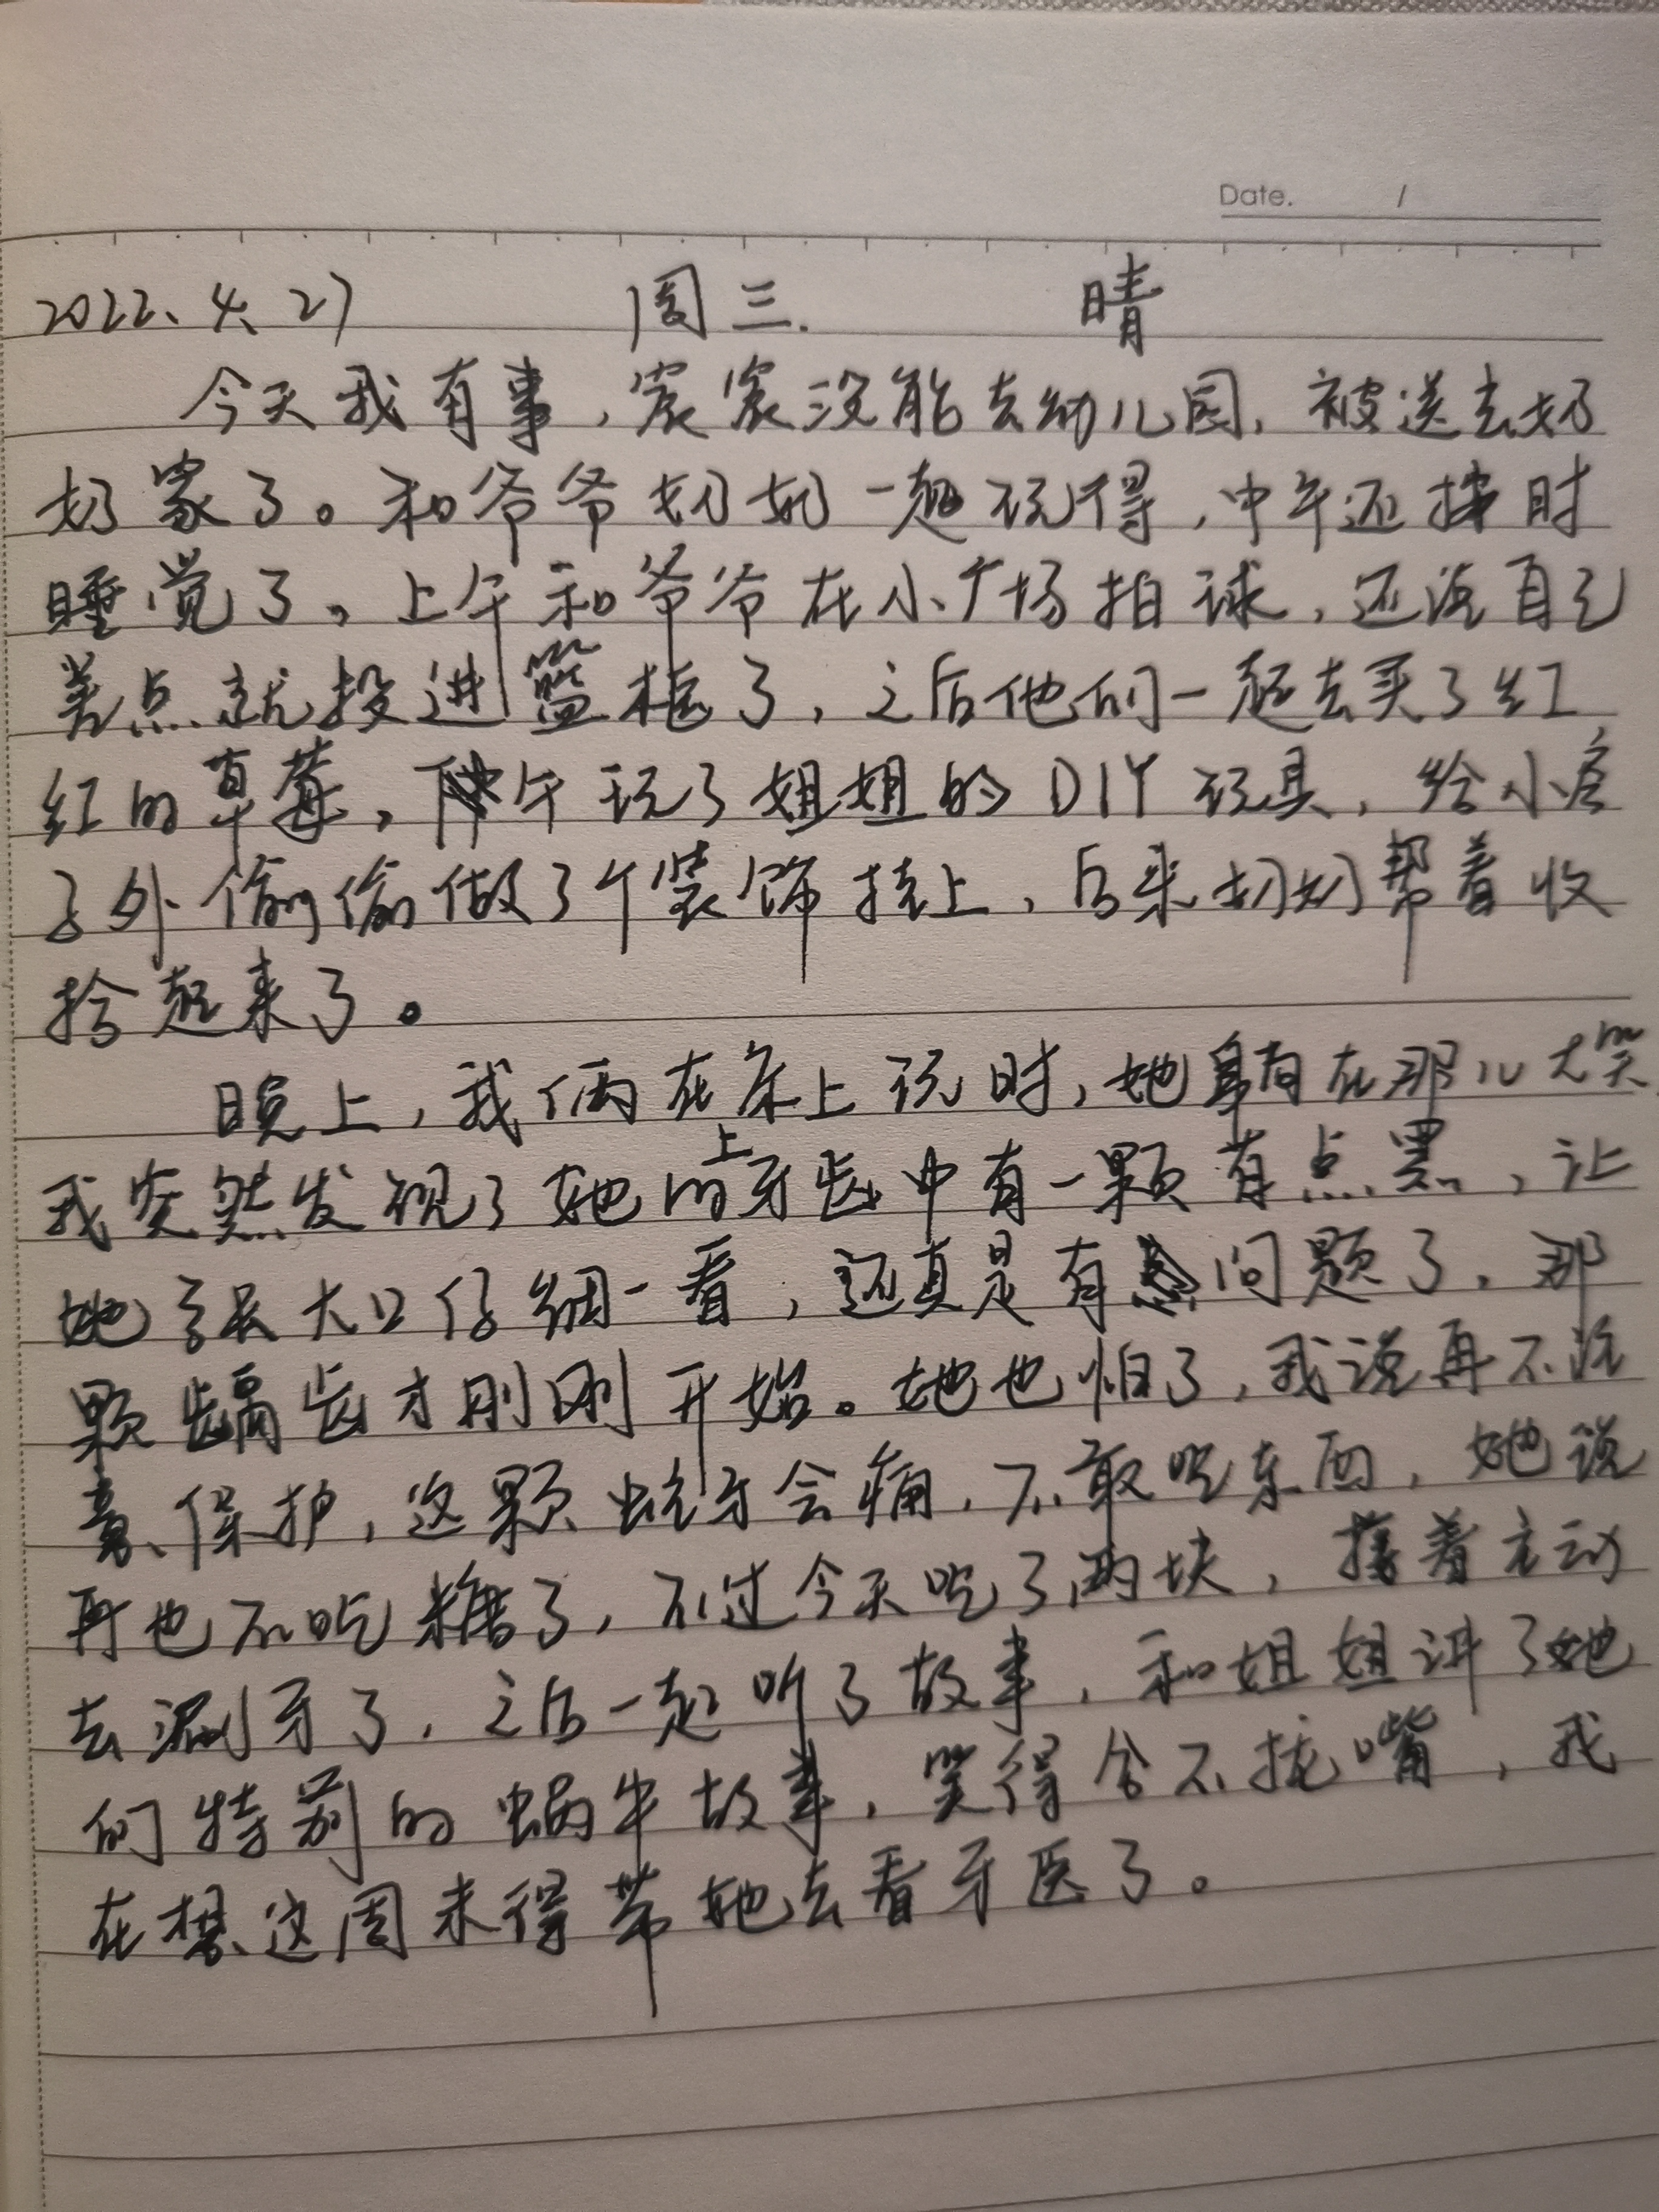 Date. /
2022、4、27 周三. 晴
今天我有事，宸宸没能去幼儿园，被送去奶
奶家了。和爷爷奶奶一起玩得，中午还按时
睡觉了。上午和爷爷在小广场拍球，还说自己
差点就投进篮框了，之后他们一起去买了红
红的草莓，下午玩了姐姐的DIY玩具，给小房
子外偷偷做了个装饰挂上，后来奶奶帮着收
拾起来了。
晚上，我俩在床上玩时，她躺在那儿大笑
我突然发现了她的上牙齿中有一颗有点黑，让
她张大口仔细一看，还真是有问题了，那
颗龋齿才刚刚开始。她也怕了，我说再不注
意、保护，这颗蛀牙会痛，不敢吃东西，她说
再也不吃糖了，不过今天吃了两块，接着主动
去涮牙了，之后一起听了故事，和姐姐讲了她
们特别的蜗牛故事，笑得合不拢嘴，我
在想这周末得带她去看牙医了。